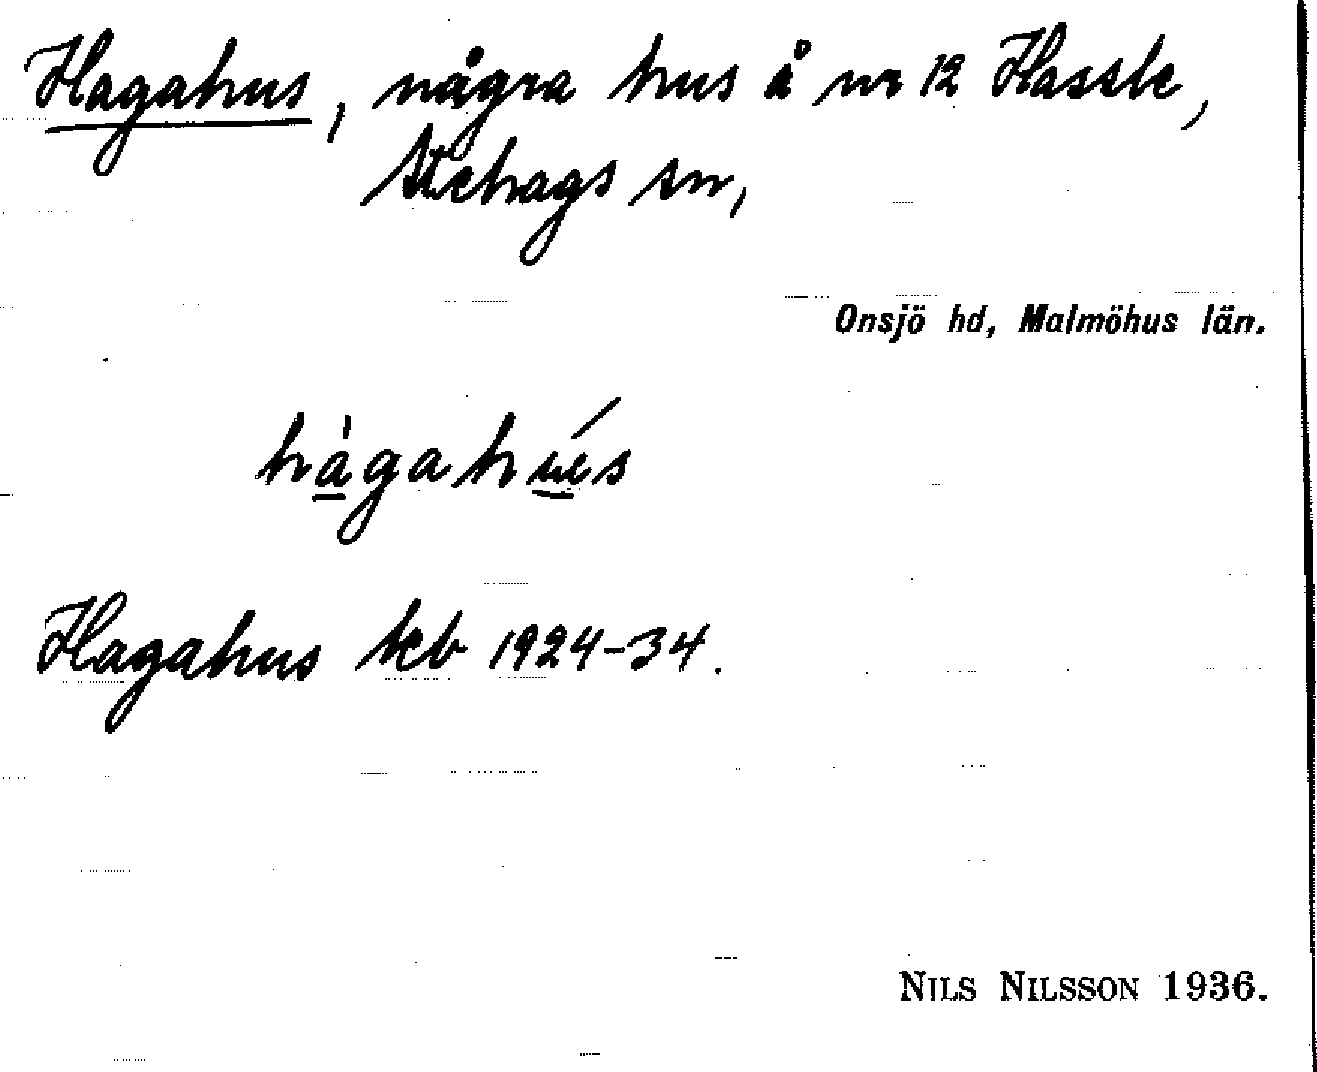 Hagahus, några hus å nr 12 Hassle,
Stehags sn,
Onsjö hd, Malmöhus län.
hàgahús
Hagahus kcb 1924-34.
NILS NILSSON 1936.